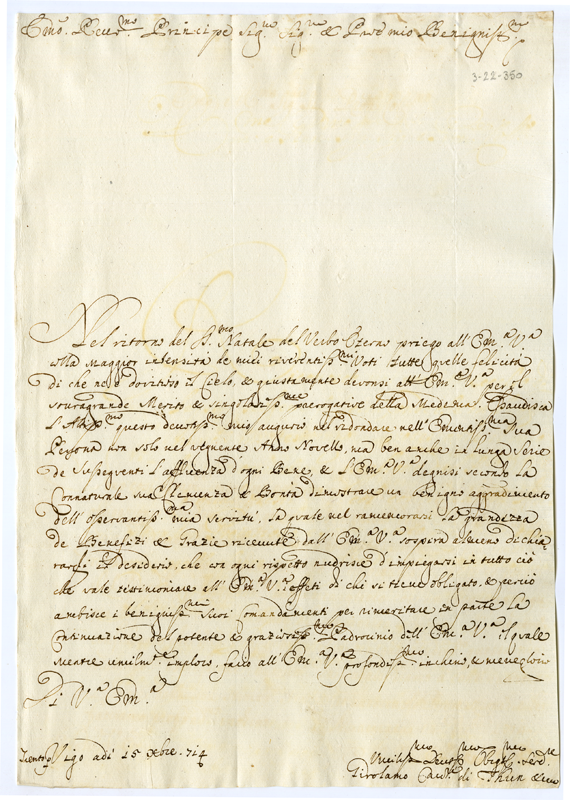 Em.º Reu.mo Principe Sig.re Sig.re & Pad.e mio Benignis.mo
3-22-350
Nel ritorno del S.mo Natale del Verbo Eterno priego all' Em.a V.a
colla maggior intensità de miei riverentiss.mi Voti tutte quelle felicità
di che ne è dovizioso il Cielo, & giustamente devonsi all' Em.a V.a per il
souragrande Merito & singolariss.me prerogative della Medema. Esaudisca
L'Altiss.mo questo devotiss.mo mio augurio nel ridondare nell' Eminentiss.ma Sua
Persona non solo nel seguente Anno Novello, ma ben anche in lunga Serie
de Susseguenti l'affluenza d'ogni Bene, & l'Em.a V.a degnisi secondo la
Connaturale sua Clemenza & Bontà dimostrare un benigno aggradimento
dell' osservantiss.ma mia servitù, la quale nel rammemorarsi la grandezza
de Benefizi & Grazie ricevute dall' Em.a V.a sospira almeno dichia-
rarsi il desiderio, che con ogni rispetto nudrisce d'impiegarsi in tutto ciò
che vale testimoniare all' Em.a V.a effeti di chi si tiene obligato, & perciò
ambisce i benigniss.mi suoi Comandamenti per rimeritare in parte la
Continuazione del potente & grazioss.mo Padrocinio dell' Em.a V.a il quale
mentre umilm.te imploro, faccio all' Em.a V.a profondiss.mo inchino, &
Di V.a Em.a
Vigo adi 15 Xbre. 714
Umiliss.mo Deuot.mo Obligat.mo Serd.re
Girolamo di Thun